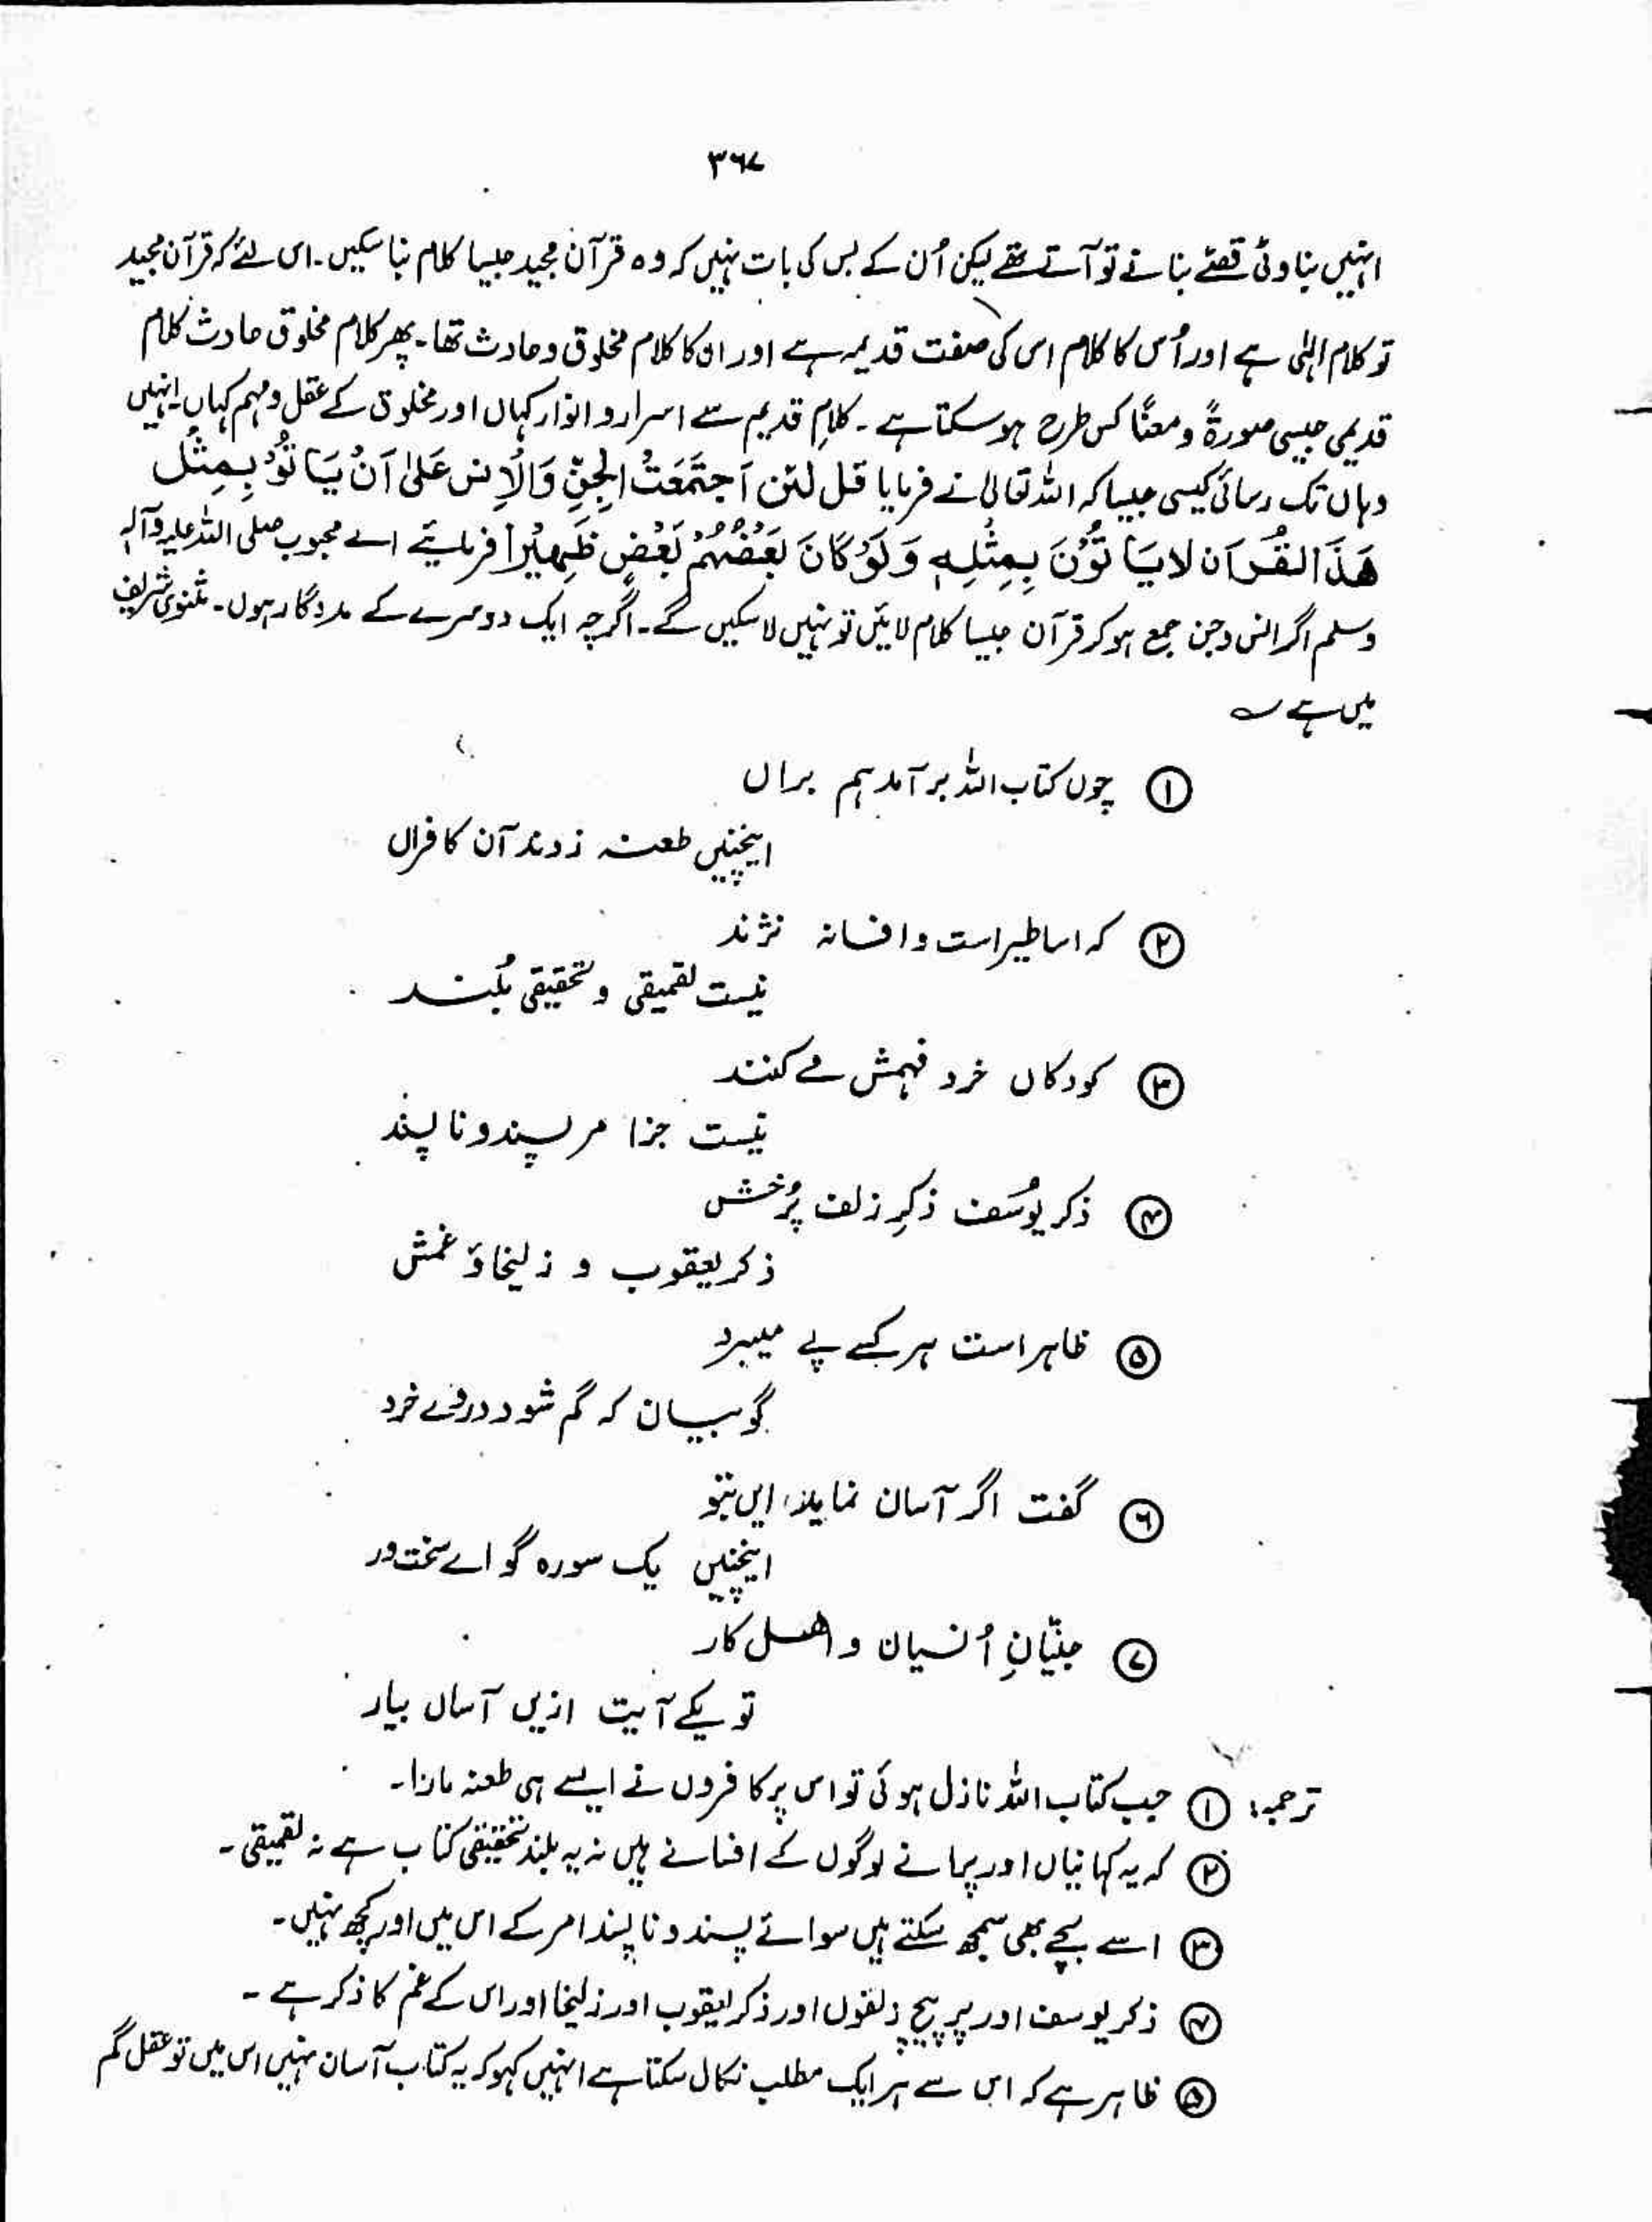 ۳۶۷
انہیں بناوٹی قصّے بنانے تو آتے تھے لیکن اُن کے بس کی بات نہیں کہ وہ قرآن مجید جیسا کلام بنا سکیں۔ اس لئے کہ قرآن مجید
تو کلام الہٰی ہے اور اُس کا کلام اس کی صفت قدیمہ ہے اور ان کا کلام مخلوق و حادث تھا۔ پھر کلام مخلوق حادث کلام
قدیمی جیسی صورۃً و معنًا کس طرح ہو سکتا ہے۔ کلامِ قدیم سے اسرار و انوار کہاں اور مخلوق کے عقل و فہم کہاں۔ انہیں
وہاں تک رسائی کیسی جیسا کہ اللہ تعالیٰ نے فرمایا قل لئن اَجتَمَعَتْ الجِنِّ وَالْاِنس عَلیٰ اَنْ یَاتُوْ بِمِثْلِ
ھَذَا القُرَاٰن لا یَاتُوْنَ بِمِثْلِهٖ وَلَوْ کَانَ بَعْضُهُمْ بَعْضٍ ظَهِیْراً فرمایئے اے محبوب صلی اللہ علیہ وآلہ
وسلم اگر انس و جن جمع ہو کر قرآن جیسا کلام لائیں تو نہیں لا سکیں گے۔ اگرچہ ایک دوسرے کے مددگار ہوں۔ مثنوی شریف
میں ہے ؎
① چوں کتاب اللہ بر آمد ہم براں
ایخنیں طعنہ زدند آن کافراں
② کہ اساطیر است و افسانہ نژند
نیست تعمیقی و تحقیقی بُلند
③ کودکاں خرد فہمش مے کنند
نیست جزا مر پسند و نا پسند
④ ذکر یوُسَف ذکرِ زلف پُرخش
ذکر یعقوب و زلیخا وَ غمش
⑤ ظاہر است ہر کسے پے میبرد
گو بیان کہ گم شود دروے خرد
⑥ گفت اگر آسان نماید ایں بتو
ایخنیں یک سورہ گو اے سخت ور
⑦ جنّیانِ اُنسیان و اھل کار
تو یکے آیت ازیں آساں بیار
ترجمہ: ① جب کتاب اللہ نازل ہوئی تو اس پر کافروں نے ایسے ہی طعنہ مارا۔
② کہ یہ کہانیاں اور پرانے لوگوں کے افسانے ہیں نہ یہ بلند تحقیقی کتاب ہے نہ تعمیقی۔
③ اسے بچے بھی سمجھ سکتے ہیں سوائے پسند و نا پسند امر کے اس میں اور کچھ نہیں۔
④ ذکر یوسف اور پر پیچ زلفوں اور ذکر یعقوب اور زلیخا اور اس کے غم کا ذکر ہے۔
⑤ ظاہر ہے کہ اس سے ہر ایک مطلب نکال سکتا ہے انہیں کہو کہ یہ کتاب آسان نہیں اس میں تو عقل گم